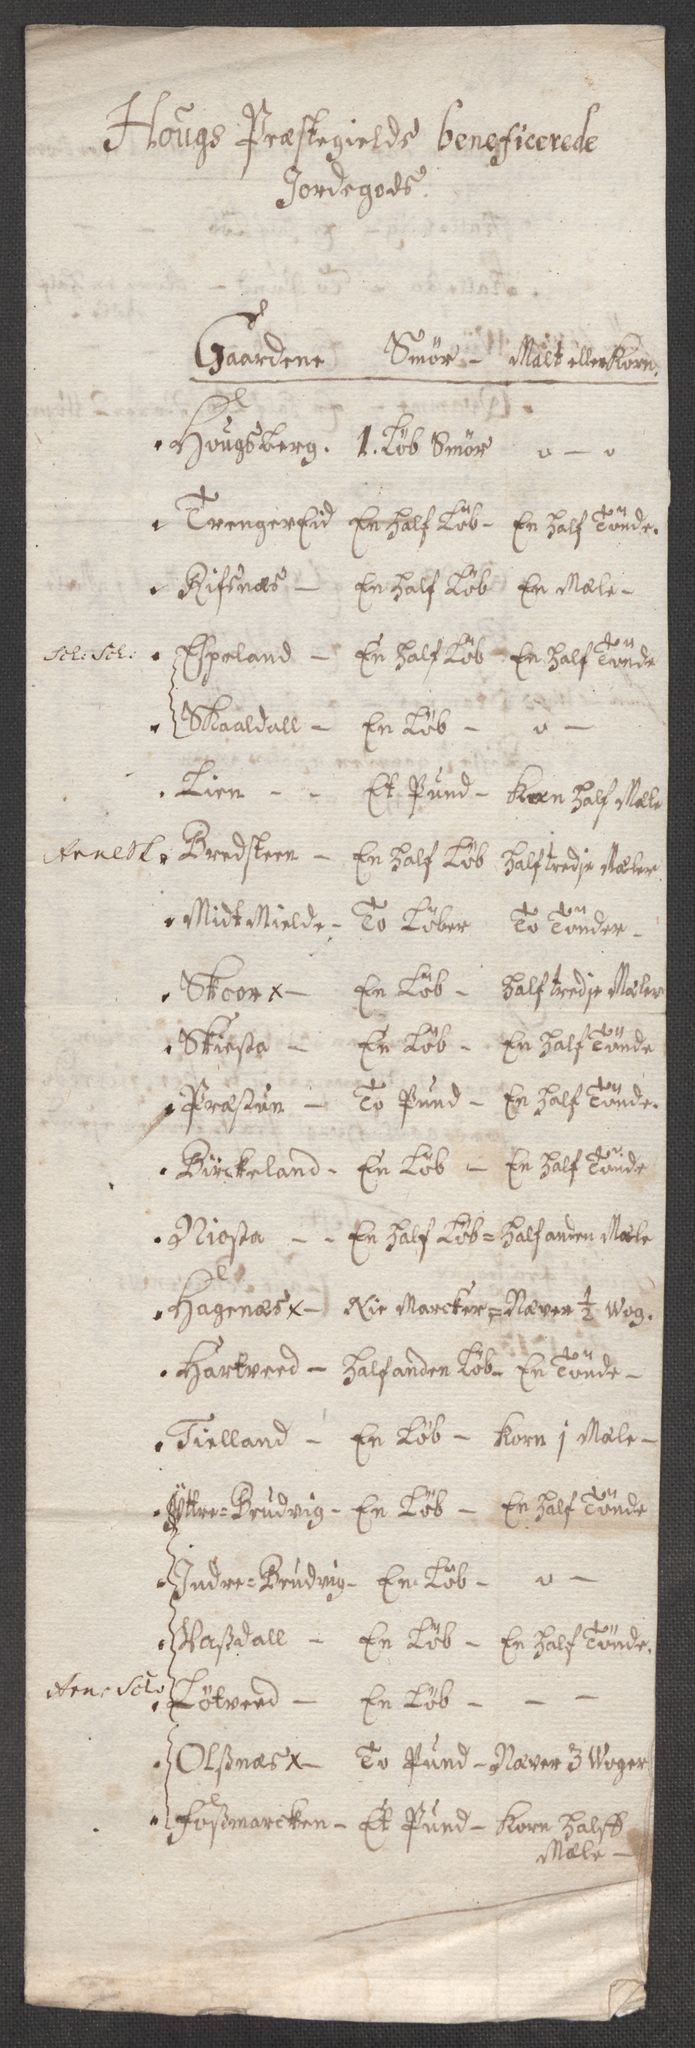 Hougs Præstegields beneficerede
Jordegods.
Gaardene Smör - Malt eller Korn.
Hougsberg. 1. Löb Smör o - o
TrengerEid En half Löb - En half Tönde.
Rifsnæs - En half Löb En Mæle -
Espeland - En half Löb En half Tönde
Skaaldall - En Löb - o -
Lien - - Et Pund - Korn half Mæle
Bredsteen - En half Löb halftredje Mæler
Midt Mielde - To Löber To Tönder -
Skoor x - En Löb - halftredje Mæler
Skiesta - En Löb - En half Tönde
Præstun - To Pund - En half Tönde.
Birckeland - En Löb - En half Tönde
Niosta - - En half Löb = half anden Mæle
Hagenæs x - Nie Marcker = Næver ½ Wog.
Hartveed - half anden Löb - En Tönde -
Tielland - En Löb - Korn j Mæle -
Yttre = Brudvig - En Löb - En half Tönde
Indre = Brudvig - En Löb - o -
Vaßdall - En Löb - En half Tönde.
Lötveed - En Löb - - -
Olßnæs x - To Pund - Næver 3 Woger
Foßmarcken - Et Pund - Korn halff
Mæle -